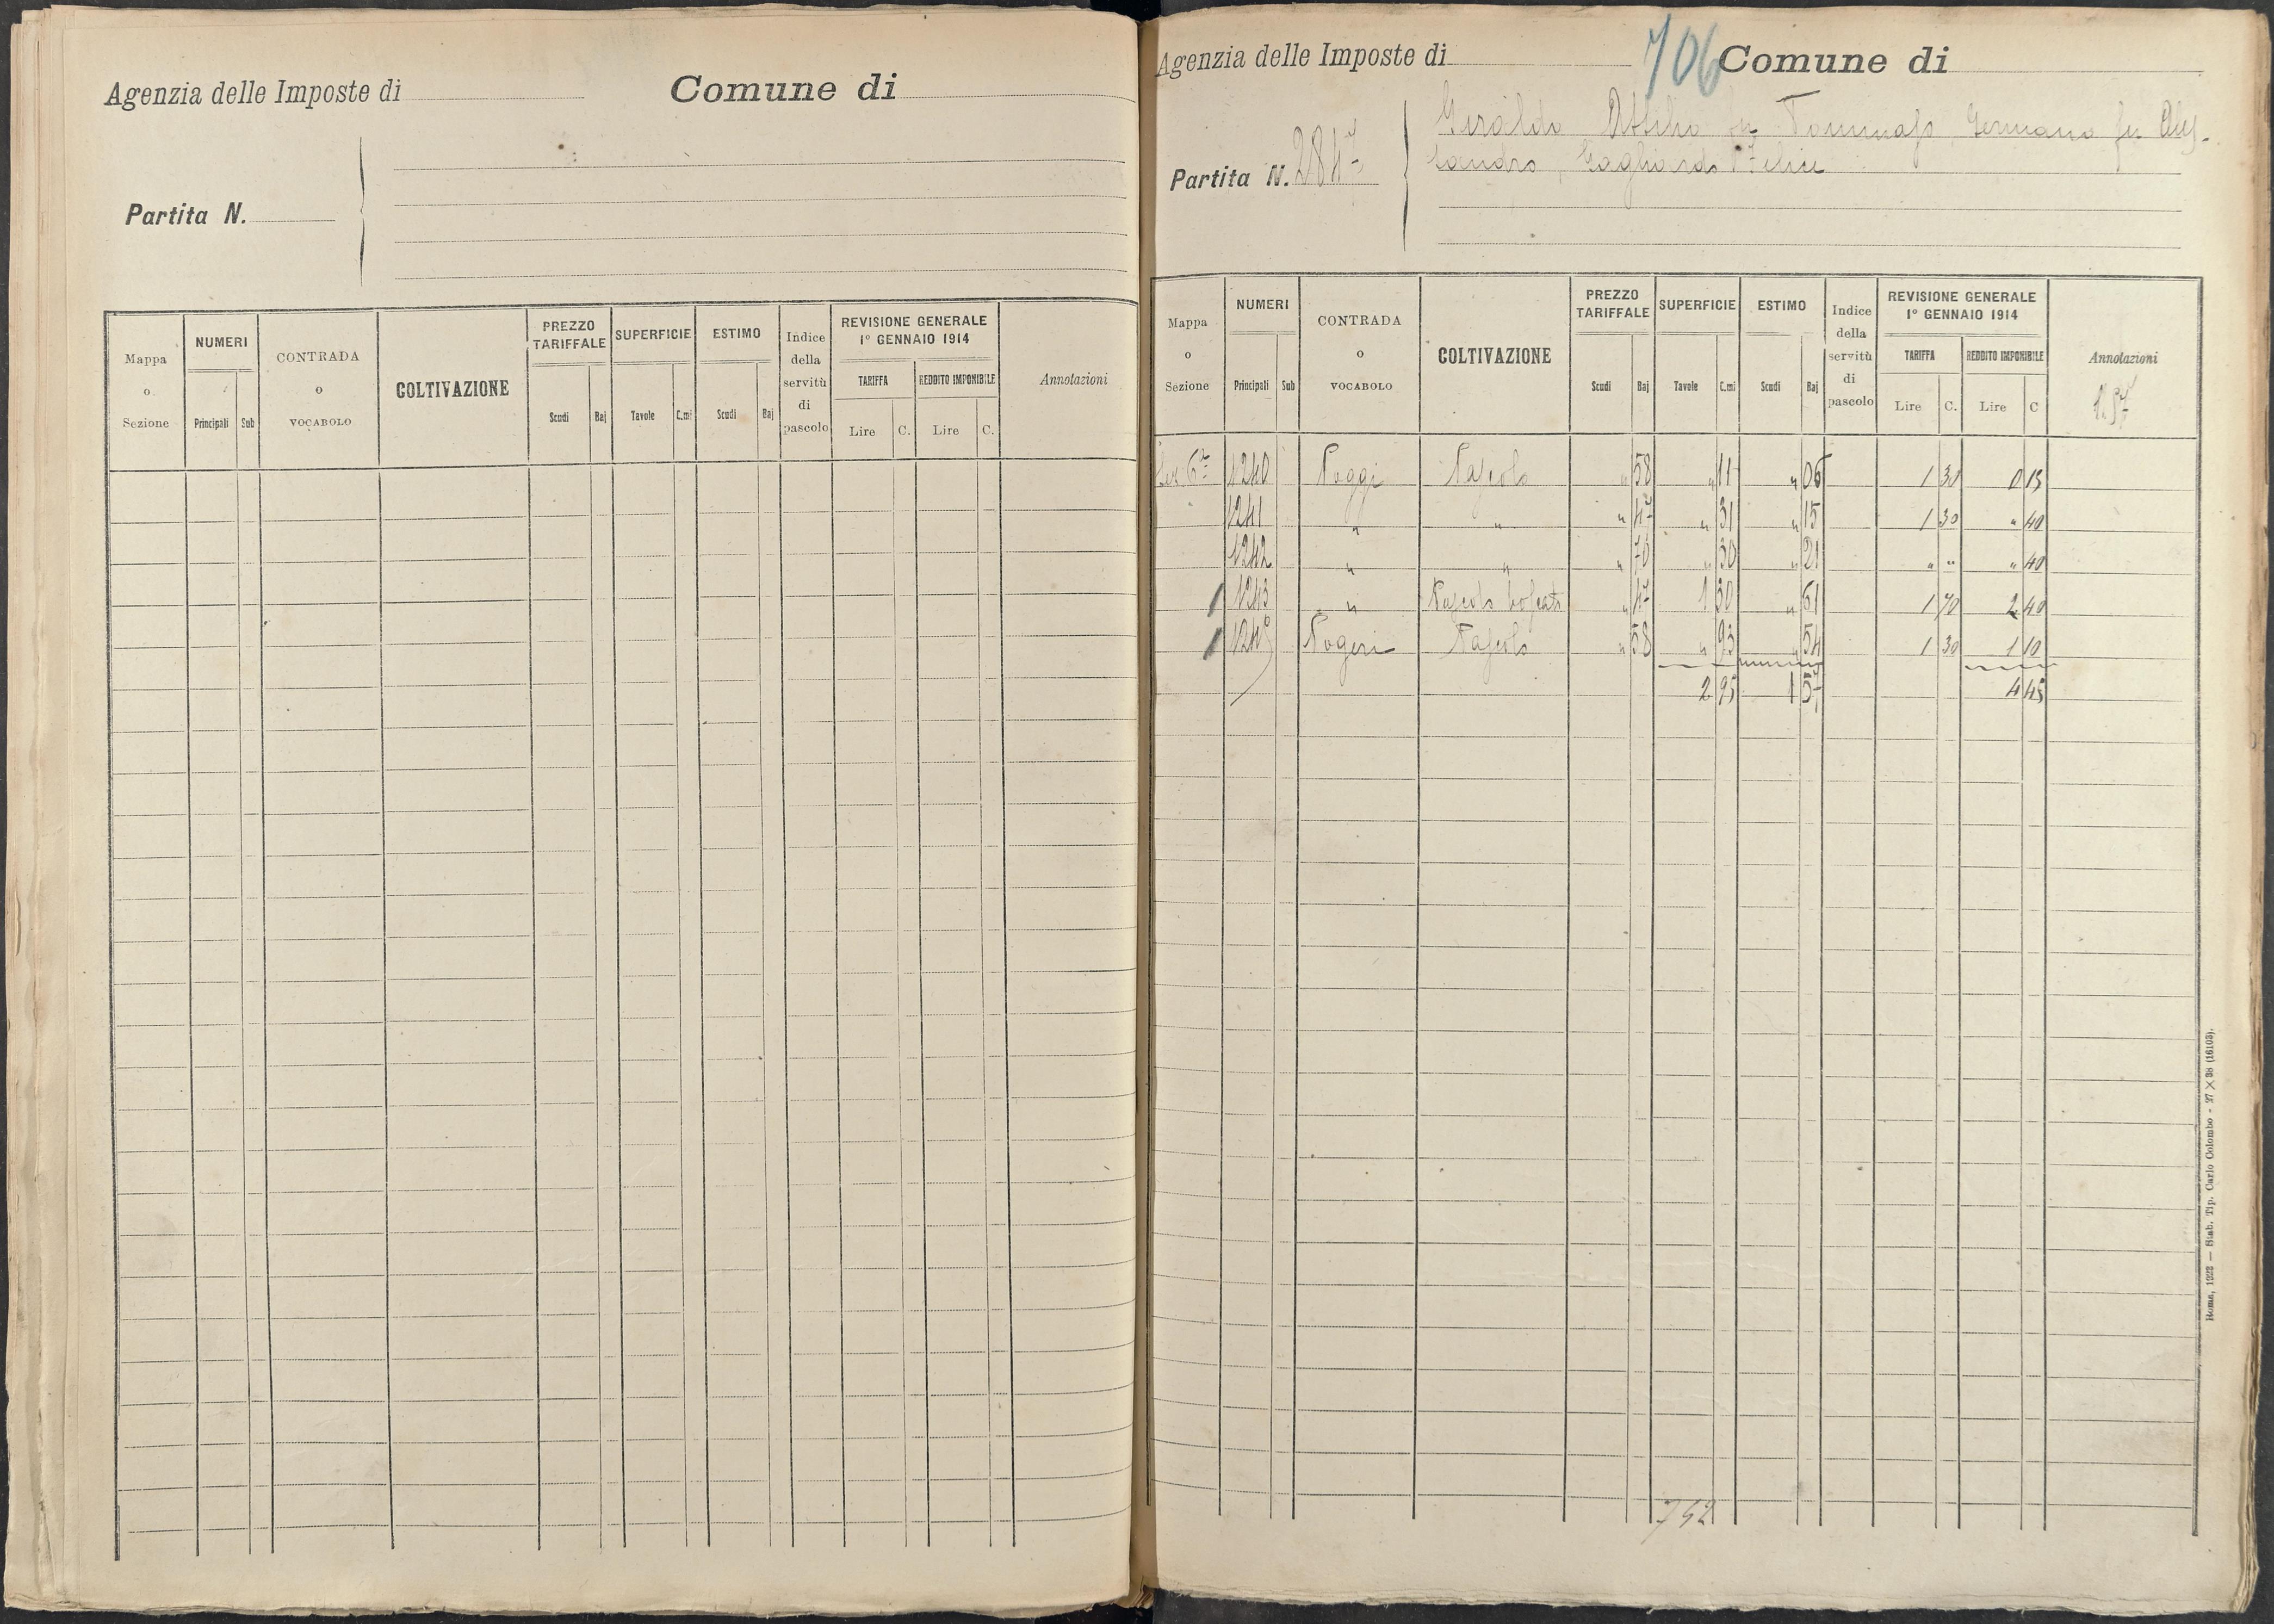 Agenzia delle Imposte di Comune di
Partita N.
Mappa o Sezione NUMERI Principali Sub CONTRADA o VOCABOLO COLTIVAZIONE PREZZO TARIFFALE Scudi Baj SUPERFICIE Tavole C.mi ESTIMO Scudi Baj Indice della servitù di pascolo REVISIONE GENERALE 1° GENNAIO 1914 TARIFFA Lire C. REDDITO IMPONIBILE Lire C. Annotazioni
706
Agenzia delle Imposte di Comune di
Partita N. 2847
Geraldo Attilio fu Tommaso, Germano fu Ales-
sandro, Gagliardo Felice
Mappa o Sezione NUMERI Principali Sub CONTRADA o VOCABOLO COLTIVAZIONE PREZZO TARIFFALE Scudi Baj SUPERFICIE Tavole C.mi ESTIMO Scudi Baj Indice della servitù di pascolo REVISIONE GENERALE 1° GENNAIO 1914 TARIFFA Lire C. REDDITO IMPONIBILE Lire C Annotazioni
1.57
Sez 6ª 1240 Poggi Pascolo " 58 " 11 " 06 1 30 0 15
1241 " " " 47 " 31 " 15 1 30 " 40
1242 " " " 70 " 30 " 21 " " " 40
1243 " Pascolo boscato " 47 1 30 " 61 1 70 2 40
124 Pogeri Pascolo " 58 " 93 " 54 1 30 1 10
2 95 1 57 4 45
752
Roma, 1923 — Stab. Tip. Carlo Colombo - 27 × 38 (16103).